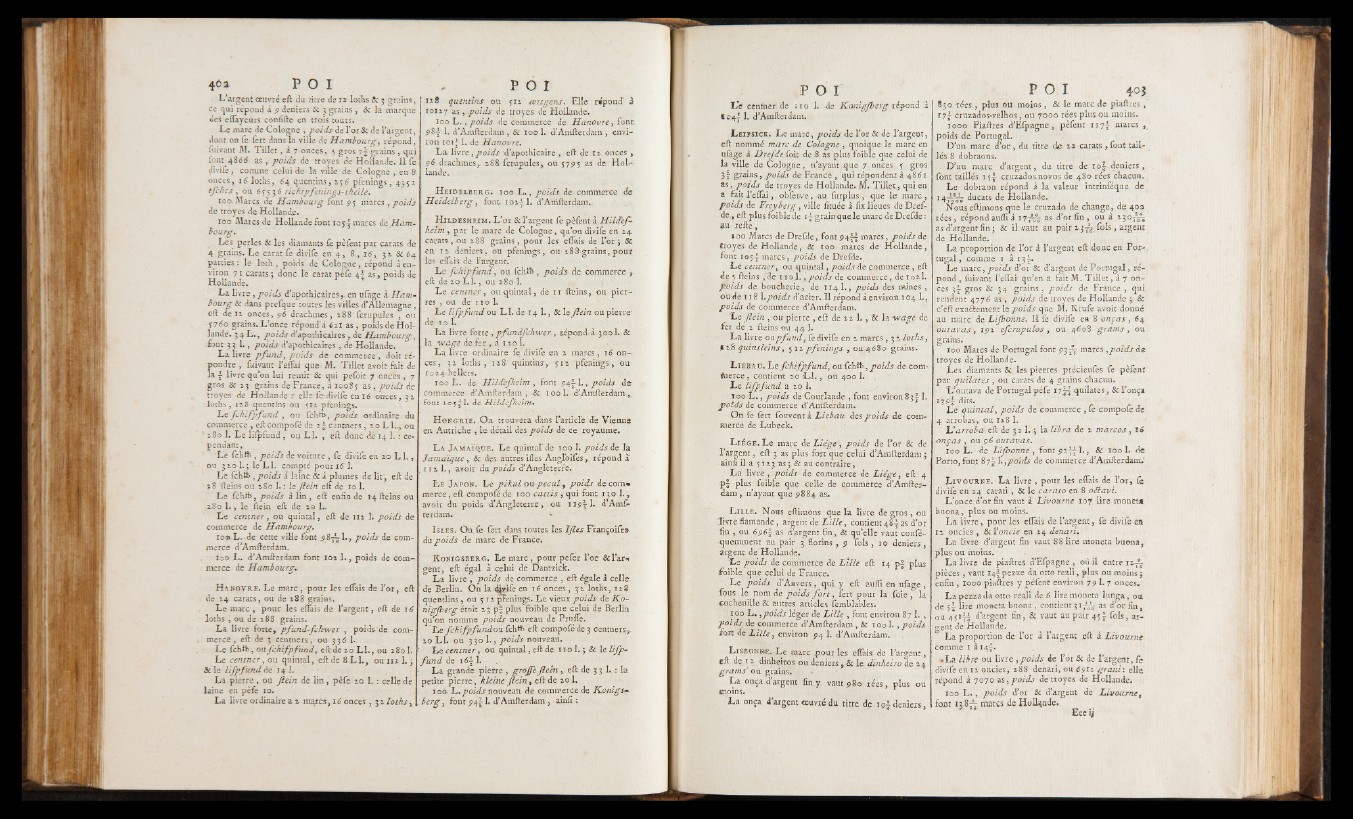 402 P O I
L'argent œuvré est du titre de 12 loths & 3 grains,
ce qui répond à 9 deniers & 3 grains, & la marque
des essayeurs consiste en trois tours.
Le marc de Cologne, poids de l'or & de l'argent,
dont on se sert dans la ville de Hambourg, répond,
suivant M. Tillet, à 7 onces, 5 gros 7½ grains, qui
font 4866 as, poids de troyes de Hollande. Il se
divise, comme celui de la ville de Cologne, en 8
onces, 16 loths, 64 quentins, 256 pfenings, 4352
esches, ou 65536 richtpfenings-theile.
100 Marcs de Hambourg font 95 marcs, poids
de troyes de Hollande.
100 Marcs de Hollande font 105 marcs de Ham-
bourg.
Les perles & les diamants se pèsent par carats de
4 grains. Le carat se divise en 4, 8, 16, 32 & 64
parties : le loth, poids de Cologne, répond à en-
viron 71 carats ; donc le carat pèse 4 as, poids de
Hollande.
La livre, poids d'apothicaires, en usage à Ham-
bourg & dans presque toutes les villes d'Allemagne,
est de 12 onces, 96 drachmes, 288 scrupules, ou
5760 grains. L'once répond à 621 as, poids de Hol-
lande. 34 L., poids d'apothicaires, de Hambourg,
font 33 l., poids d'apothicaires, de Hollande.
La livre pfund, poids de commerce, doit ré-
pondre, suivant l'essai que M. Tillet avoit fait de
la ½ livre qu'on lui remit & qui pesoit 7 onces, 7
gros & 23 grains de France, à 10085 as, poids de
troyes de Hollande : elle se divise en 16 onces, 32
loths, 128 quentins ou 512 pfenings.
Le schifpfund, ou schtb, poids ordinaire du
commerce, est composé de 2½ centners, 20 L l., ou
280 l. Le lifpfund, ou L l., est donc de 14 l. : ce-
pendant,
Le schtb, poids de voiture, se divise en 20 L l.,
ou 320 l.; le L l. compté pour 16 l.
Le schtb, poids à laine & à plumes de lit, est de
28 steins ou 280 l. : le stein est de 10 l.
Le schtb, poids à lin, est enfin de 14 steins ou
280 l., le stein est de 20 l.
Le centner, ou quintal, est de 112 l. poids de
commerce de Hambourg.
100 L. de cette ville font 98 l., poids de com-
merce d'Amsterdam.
100 L. d'Amsterdam font 102 l., poids de com-
merce de Hambourg.
HANOVRE. Le marc, pour les essais de l'or, est
de 24 carats, ou de 288 grains.
Le marc, pour les essais de l'argent, est de 16
loths, ou de 288 grains.
La livre forte, pfund-schwer, poids de com-
merce, est de 3 centners, ou 336 l.
Le schtb, ou schifpfund, est de 20 L l., ou 280 l.
Le centner, ou quintal, est de 8 L l., ou 112 l. ;
& le lifpfund de 14 l.
La pierre, ou stein de lin, pèse 20 L : celle de
laine en pèse 10.
La livre ordinaire a 2 marcs, 16 onces, 32 loths,
P O I
128 quentins ou 512 œrtgens. Elle répond à
10127 as, poids de troyes de Hollande.
100 L., poids de commerce de Hanovre, font
98 l. d'Amsterdam, & 100 l. d'Amsterdam, envi-
ron 101 l. de Hanovre.
La livre, poids d'apothicaire, est de 12 onces,
96 drachmes, 288 scrupules, ou 5795 as de Hol-
lande.
HEIDELBERG. 100 L., poids de commerce de
Heidelberg, font 102 l. d'Amsterdam.
HILDESHEIM. L'or & l'argent se pèsent à Hildes-
heim, par le marc de Cologne, qu'on divise en 24
carats, ou 288 grains, pour les essais de l'or ; &
en 12 deniers, ou pfenings, ou 288 grains, pour
les essais de l'argent.
Le schipfund, ou schtb, poids de commerce,
est de 20 L l., ou 280 l.
Le centner, ou quintal, de 11 steins, ou pier-
res, ou de 110 l.
Le lifpfund ou L l. de 14 l., & le stein ou pierre
de 10 l.
La livre forte, pfundschwer, répond à 300 l. &
la wage de fer, à 120 l.
La livre ordinaire se divise en 2 marcs, 16 on-
ces, 32 loths, 128 quintins, 512 pfenings, ou
1024 hellers.
100 L. de Hildesheim, font 94 l., poids de
commerce d'Amsterdam, & 100 l. d'Amsterdam,
font 105 l. de Hildesheim.
HONGRIE. On trouvera dans l'article de Vienne
en Autriche, le détail des poids de ce royaume.
LA JAMAÏQUE. Le quintal de 100 l. poids de la
Jamaïque, & des autres isles Angloises, répond à
112 l., avoir du poids d'Angleterre.
LE JAPON. Le pikul ou pecul, poids de com-
merce, est composé de 100 cattis, qui font 130 l.,
avoir du poids d'Angleterre, ou 119 l. d'Ams-
terdam.
ISLES. On se sert dans toutes les Isles Françoises
du poids de marc de France.
KONIGSBERG. Le marc, pour peser l'or & l'ar-
gent, est égal à celui de Dantzick.
La livre, poids de commerce, est égale à celle
de Berlin. On la divise en 16 onces, 32 loths, 128
quentins, ou 512 pfenings. Le vieux poids de Ko-
nigsberg étoit 23 p° plus foible que celui de Berlin
qu'on nomme poids nouveau de Prusse.
Le schifpfund ou schtb est composé de 3 centners,
20 L l. ou 330 l., poids nouveau.
Le centner, ou quintal, est de 110 l. ; & le lisp-
fund de 16½ l.
La grande pierre, grosse stein, est de 33 l. : la
petite pierre, kleine stein, est de 20 l.
100 L. poids nouveau de commerce de Konigs-
berg, font 94 l. d'Amsterdam, ainsi :
P O I
Le centner de 110 l. de Konigsberg répond à
104 l. d'Amsterdam.
LEIPSICK. Le marc, poids de l'or & de l'argent,
est nommé marc de Cologne, quoique le marc en
usage à Dresde soit de 8 as plus foible que celui de
la ville de Cologne, n'ayant que 7 onces 5 gros
3½ grains, poids de France, qui répondent à 4861
as, poids de troyes de Hollande. M. Tillet, qui en
a fait l'essai, observe, au surplus, que le marc,
poids de Freyberg, ville située à six lieues de Dres-
de, est plus foible de 1½ grain que le marc de Dresde :
au reste,
100 Marcs de Dresde, font 94 marcs, poids de
troyes de Hollande, & 100 marcs de Hollande,
font 105 marcs, poids de Dresde.
Le centner, ou quintal, poids de commerce, est
de 5 steins, de 110 l., poids de commerce, de 102 l.
poids de boucherie, de 114 l., poids des mines,
ou de 118 l. poids d'acier. Il répond à environ 104 l.,
poids de commerce d'Amsterdam.
Le stein, ou pierre, est de 22 l., & la wage de
fer de 2 steins ou 44 l.
La livre ou pfund, se divise en 2 marcs, 32 loths,
128 quinsteins, 512 pfenings, ou 4680 grains.
LIEBAU. Le schifpfund, ou schtb, poids de com-
merce, contient 20 L l., ou 400 l.
Le lifpfund a 20 l.
100 L., poids de Courlande, font environ 83 l.
poids de commerce d'Amsterdam.
On se sert souvent à Liebau des poids de com-
merce de Lubeck.
LIÉGE. Le marc de Liége, poids de l'or & de
l'argent, est 3 as plus fort que celui d'Amsterdam ;
ainsi il a 5123 as ; & au contraire,
La livre, poids de commerce de Liége, est 4
p° plus foible que celle de commerce d'Amster-
dam, n'ayant que 9884 as.
LILLE. Nous estimons que la livre de gros, ou
livre flamande, argent de Lille, contient 48 as d'or
fin, ou 696 as d'argent fin, & qu'elle vaut consé-
quemment au pair 3 florins, 9 sols, 10 deniers,
argent de Hollande.
Le poids de commerce de Lille est 14 p° plus
foible que celui de France.
Le poids d'Anvers, qui y est aussi en usage,
sous le nom de poids fort, sert pour la soie, la
cochenille & autres articles semblables.
100 L., poids léger de Lille, font environ 87 l.,
poids de commerce d'Amsterdam, & 100 l., poids
fort de Lille, environ 94 l. d'Amsterdam.
LISBONNE. Le marc pour les essais de l'argent,
est de 12 dinheiros ou deniers, & le dinheiro de 24
grams ou grains.
La onça d'argent fin y vaut 980 rées, plus ou
moins.
La onça d'argent œuvré du titre de 10 deniers,
P O I 403
830 rées, plus ou moins, & le marc de piastres,
17 cruzados-velhos, ou 7000 rées plus ou moins.
1000 Piastres d'Espagne, pèsent 117 marcs,
poids de Portugal.
D'un marc d'or, du titre de 22 carats, sont tail-
lés 8 dobraons.
D'un marc d'argent, du titre de 10 deniers,
sont taillés 15 cruzados novos de 480 rées chacun.
Le dobraon répond à la valeur intrinsèque de
14 ducats de Hollande.
Nous estimons que le cruzado de change, de 400
rées, répond aussi à 17 as d'or fin, ou à 230
as d'argent fin ; & il vaut au pair 23 sols, argent
de Hollande.
La proportion de l'or à l'argent est donc en Por-
tugal, comme 1 à 13.
Le marc, poids d'or & d'argent de Portugal, ré-
pond, suivant l'essai qu'en a fait M. Tillet, à 7 on-
ces 3½ gros & 34 grains, poids de France, qui
rendent 4776 as, poids de troyes de Hollande ; &
c'est exactement le poids que M. Krufe avoit donné
au marc de Lisbonne. Il se divise en 8 onças, 64
outavas, 192 escrupulos, ou 4608 grams, ou
grains.
100 Marcs de Portugal font 93 marcs, poids de
troyes de Hollande.
Les diamants & les pierres précieuses se pèsent
par quilates, ou carats de 4 grains chacun.
L'outava de Portugal pèse 17 quilates, & l'onça
139 dits.
Le quintal, poids de commerce, se compose de
4 arrobas, ou 128 l.
L'arroba est de 32 l. ; la libra de 2 marcos, 16
onças, ou 96 outavas.
100 L. de Lisbonne, font 92 l., & 100 l. de
Porto, font 87 l., poids de commerce d'Amsterdam.
LIVOURNE. La livre, pour les essais de l'or, se
divise en 24 carati, & le carato en 8 ottavi.
L'once d'or fin vaut à Livourne 107 lire moneta
buona, plus ou moins.
La livre, pour les essais de l'argent, se divise en
12 oncies, & l'oncie en 24 denari.
La livre d'argent fin vaut 88 lire moneta buona,
plus ou moins.
La livre de piastres d'Espagne, où il entre 12
pièces, vaut 14 pezze da otto reali, plus ou moins ;
enfin, 1000 piastres y pèsent environ 79 l. 7 onces.
La pezza da otto reali de 6 lire moneta lunga, ou
de 5¾ lire moneta buona, contient 31 as d'or fin,
ou 451 d'argent fin, & vaut au pair 45 sols, ar-
gent de Hollande.
La proportion de l'or à l'argent est à Livourne
comme 1 à 14.
La libre ou livre, poids de l'or & de l'argent, se
divise en 12 oncies, 288 denari, ou 6912 grani : elle
répond à 7070 as, poids de troyes de Hollande.
100 L., poids d'or & d'argent de Livourne,
font 138 marcs de Hollande.
Eee ij